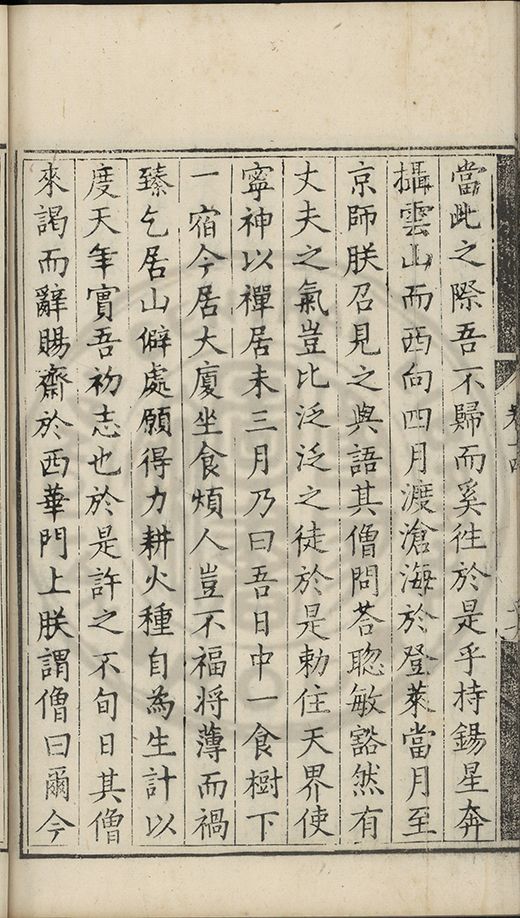 當此之際吾不歸而奚往於是乎持錫星奔
攝雲山而西向四月渡滄海於登萊當月至
京師朕召見之與語其僧問荅聦敏豁然有
丈夫之氣豈比泛泛之徒於是勅住天界使
寧神以禪居未三月乃曰吾日中一食樹下
一宿今居大廈坐食煩人豈不福將薄而禍
臻乞居山僻處願得力耕火種自為生計以
度天年實吾初志也於是許之不旬日其僧
來謁而辭賜齋於西華門上朕謂僧曰爾今